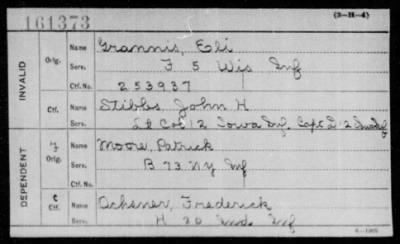 161373
(3-H-4)
INVALID
Orig. Name Grannis, Eli
Serv. F 5 Wis Inf
Ctf. No. 253937
Ctf. Name Stibbs, John H
Serv. Lt Col 12 Iowa Inf. Capt D 12
DEPENDENT
Orig. Name Moore, Patrick
Serv. B 73 NY Inf
Ctf. No.
Ctf. Name Ochsner, Frederick
Serv. H 20 Ind Inf